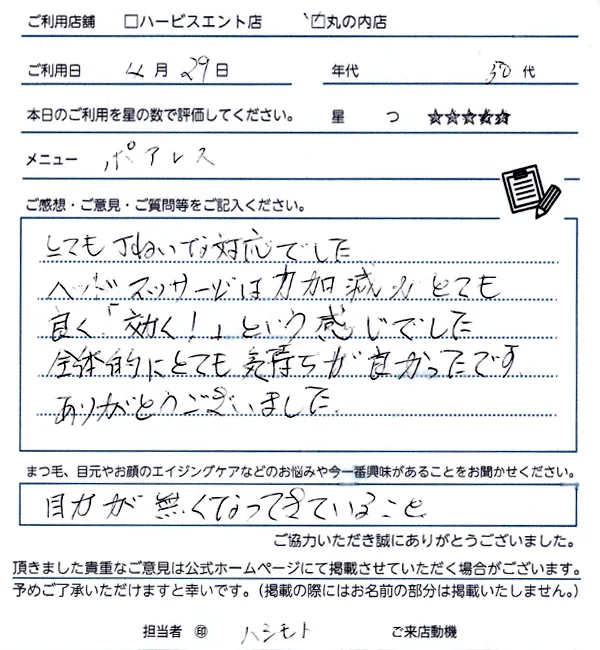 ご利用店舗 □ハービスエント店 ☑丸の内店
ご利用日 4月29日 年代 50代
本日のご利用を星の数で評価してください。 星 つ ☆☆☆☆☆
メニュー ポアレス
ご感想・ご意見・ご質問等をご記入ください。
とても丁ねいな対応でした
ヘッドマッサージは力加減がとても
良く「効く!」という感じでした
全体的にとても気持ちが良かったです。
ありがとうございました。
まつ毛、目元やお顔のエイジングケアなどのお悩みや今一番興味があることをお聞かせください。
目力が無くなってきていること
ご協力いただき誠にありがとうございました。
頂きました貴重なご意見は公式ホームページにて掲載させていただく場合がございます。
予めご了承いただけますと幸いです。(掲載の際にはお名前の部分は掲載いたしません。)
担当者 ㊞ ハシモト ご来店動機